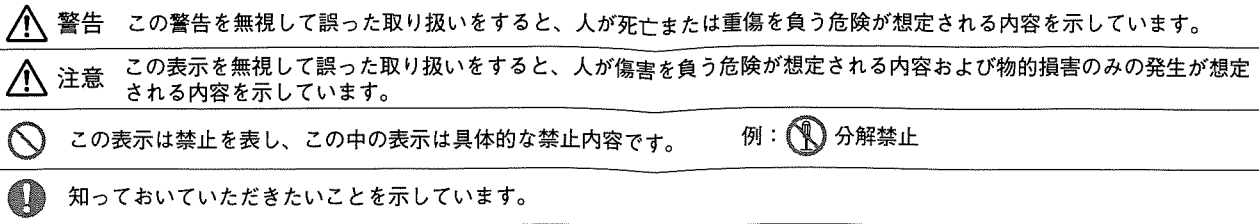 警告 この警告を無視して誤った取り扱いをすると、人が死亡または重傷を負う危険が想定される内容を示しています。
注意 この表示を無視して誤った取り扱いをすると、人が傷害を負う危険が想定される内容および物的損害のみの発生が想定
される内容を示しています。
この表示は禁止を表し、この中の表示は具体的な禁止内容です。 例：分解禁止
知っておいていただきたいことを示しています。